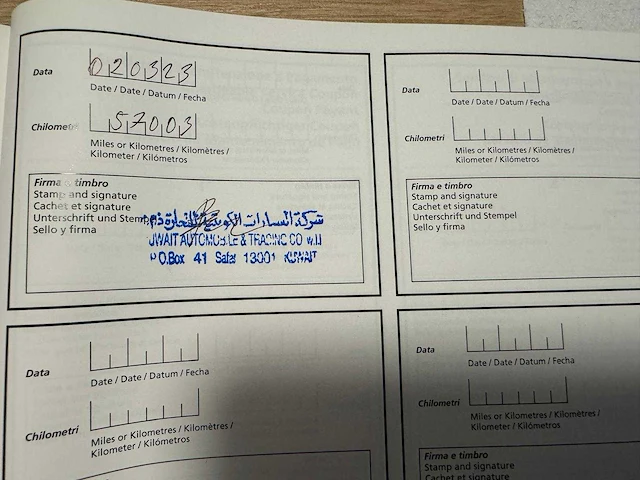 Data
020323
Date / Date / Datum / Fecha
Chilometri
57003
Miles or Kilometres / Kilomètres /
Kilometer / Kilómetros
Firma e timbro
Stamp and signature
Cachet et signature
Unterschrift und Stempel
Sello y firma
شركة السيارات الكويتية للتجارة ذ.م.م
KUWAIT AUTOMOBILE & TRADING CO W.L.L
P.O.Box 41 Safat 13001 KUWAIT
Data
Date / Date / Datum / Fecha
Chilometri
Miles or Kilometres / Kilomètres /
Kilometer / Kilómetros
Firma e timbro
Stamp and signature
Cachet et signature
Unterschrift und Stempel
Sello y firma
Data
Date / Date / Datum / Fecha
Chilometri
Miles or Kilometres / Kilomètres /
Kilometer / Kilómetros
Data
Date / Date / Datum / Fecha
Chilometri
Miles or Kilometres / Kilomètres /
Kilometer / Kilómetros
Firma e timbro
Stamp and signature
Cachet et signature